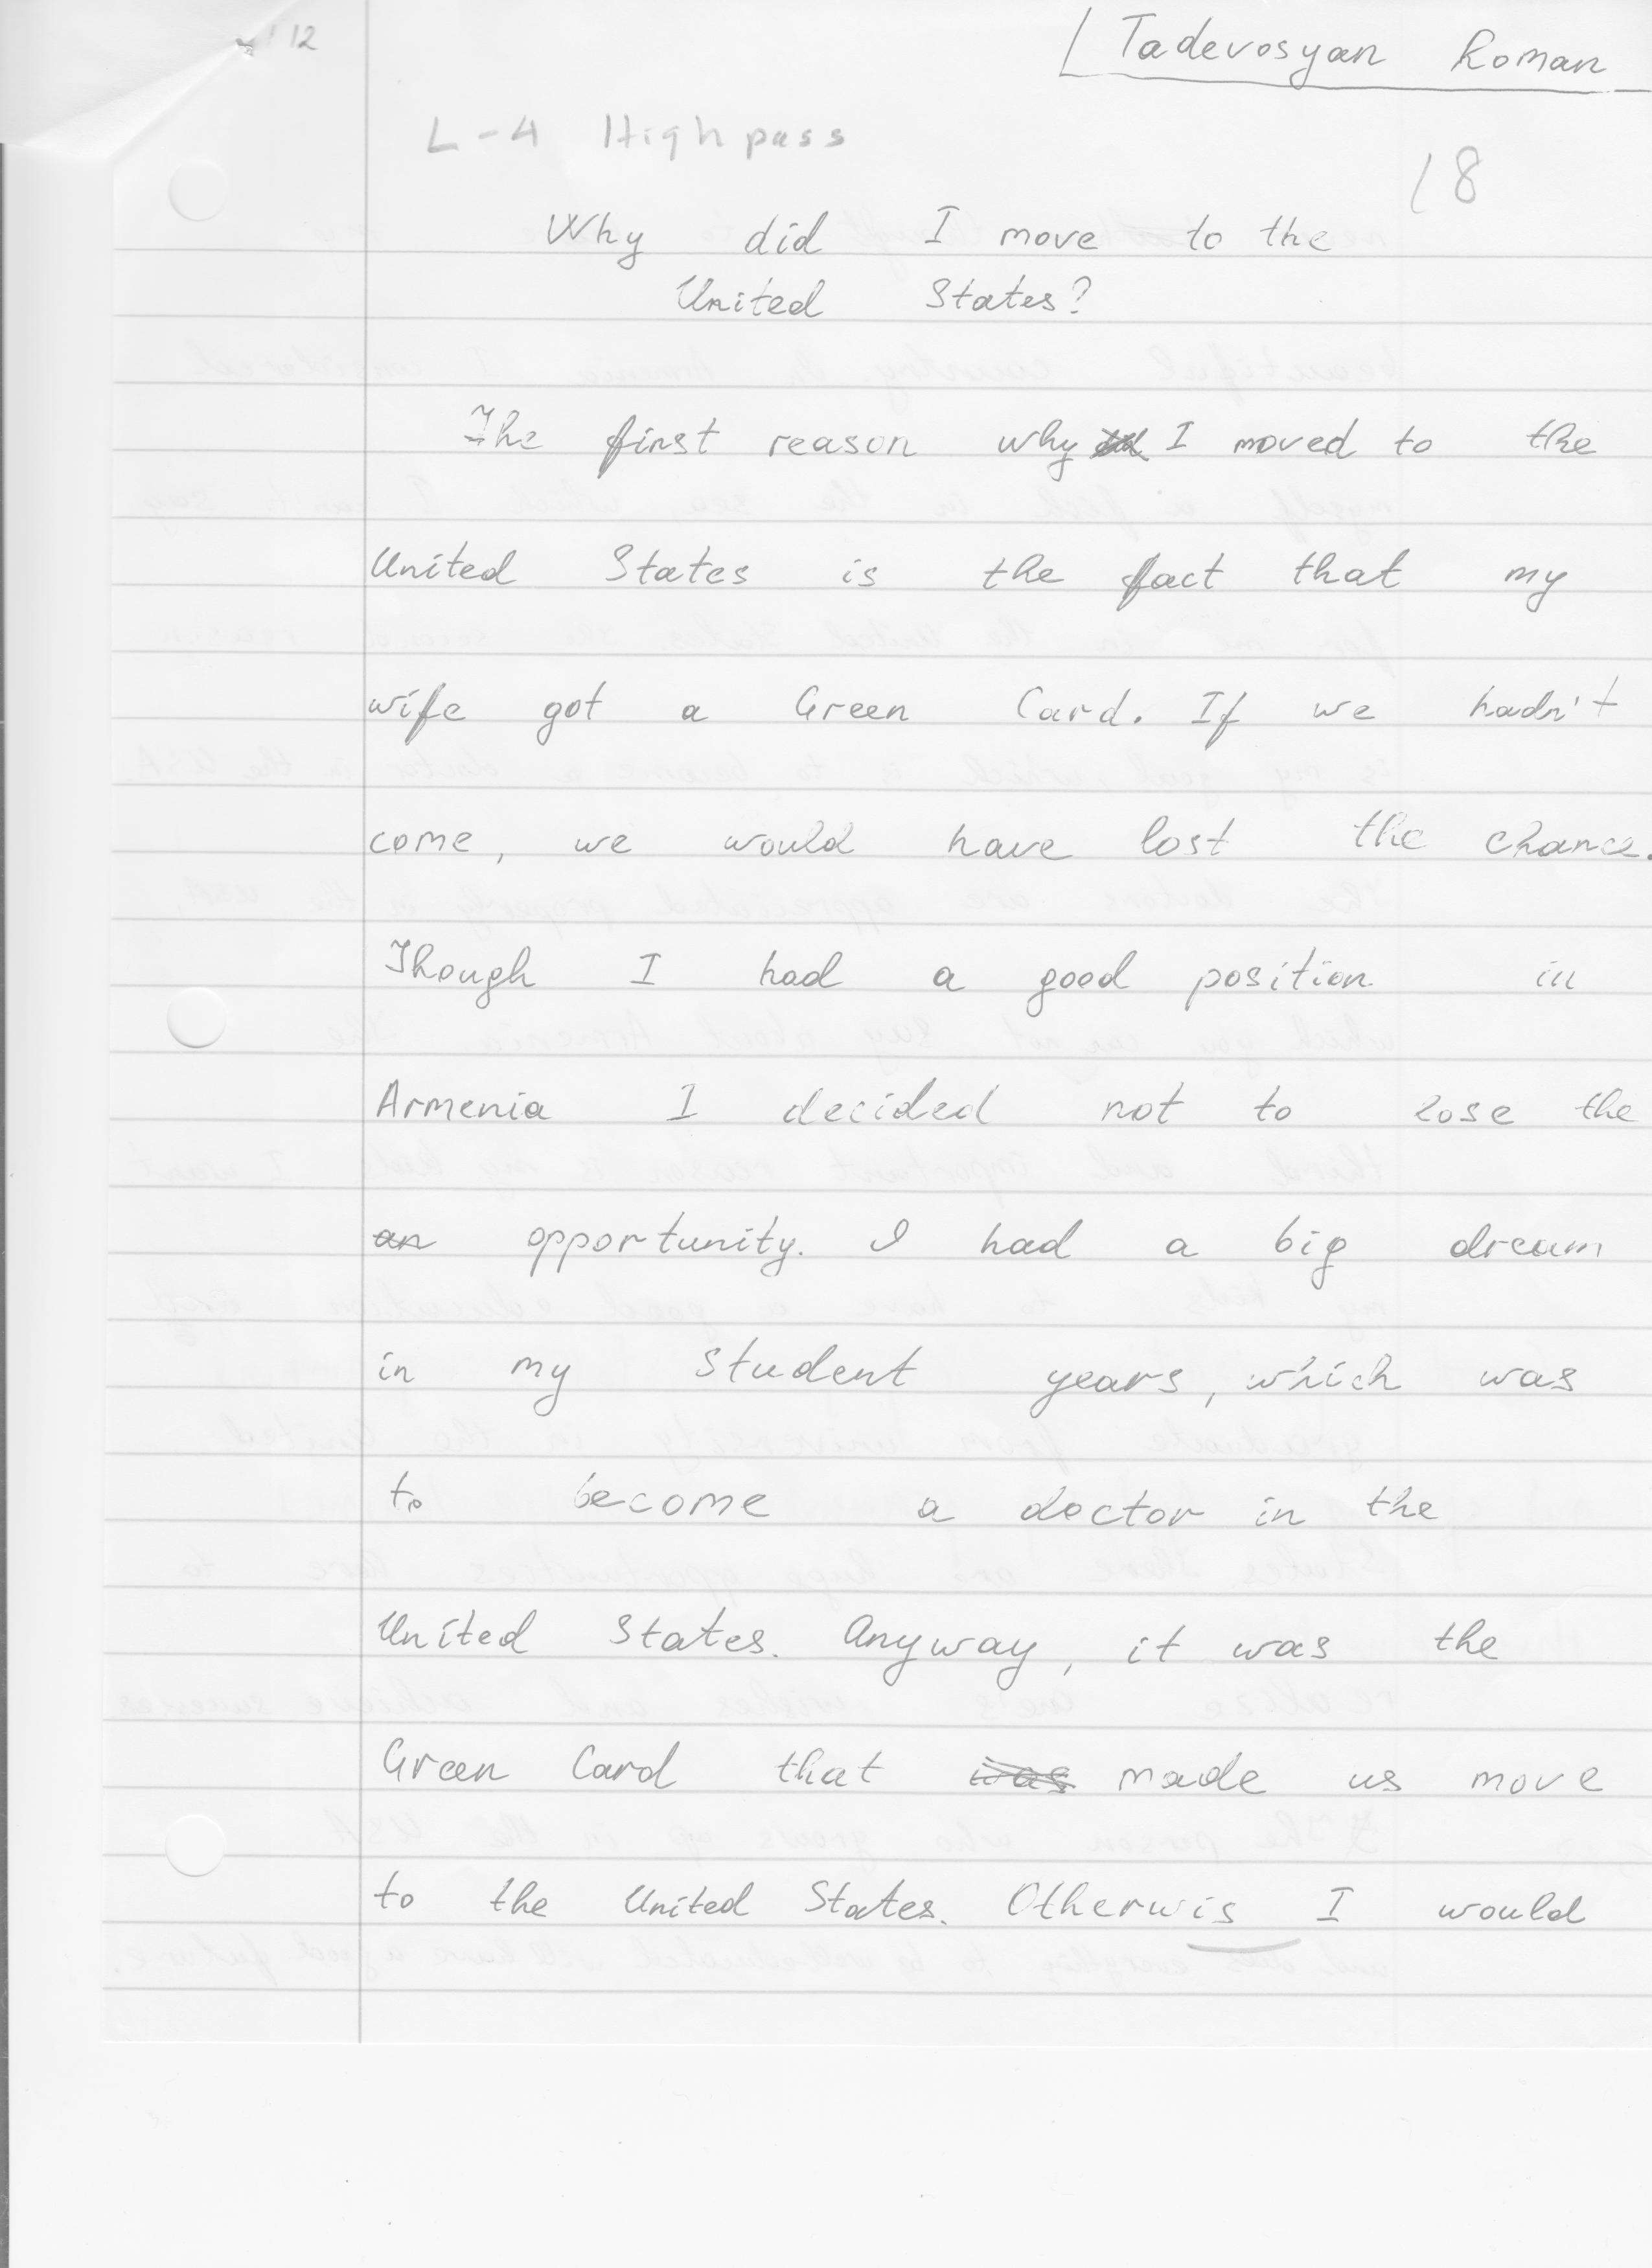 12
Tadevosyan Roman
L-4 High pass
18
Why did I move to the
United States?
The first reason why I moved to the
United States is the fact that my
wife got a Green Card. If we hadn't
come, we would have lost the chance.
Though I had a good position in
Armenia I decided not to lose the
an opportunity. I had a big dream
in my student years, which was
to become a doctor in the
United States. Anyway, it was the
Green Card that was made us move
to the United States. Otherwis I would